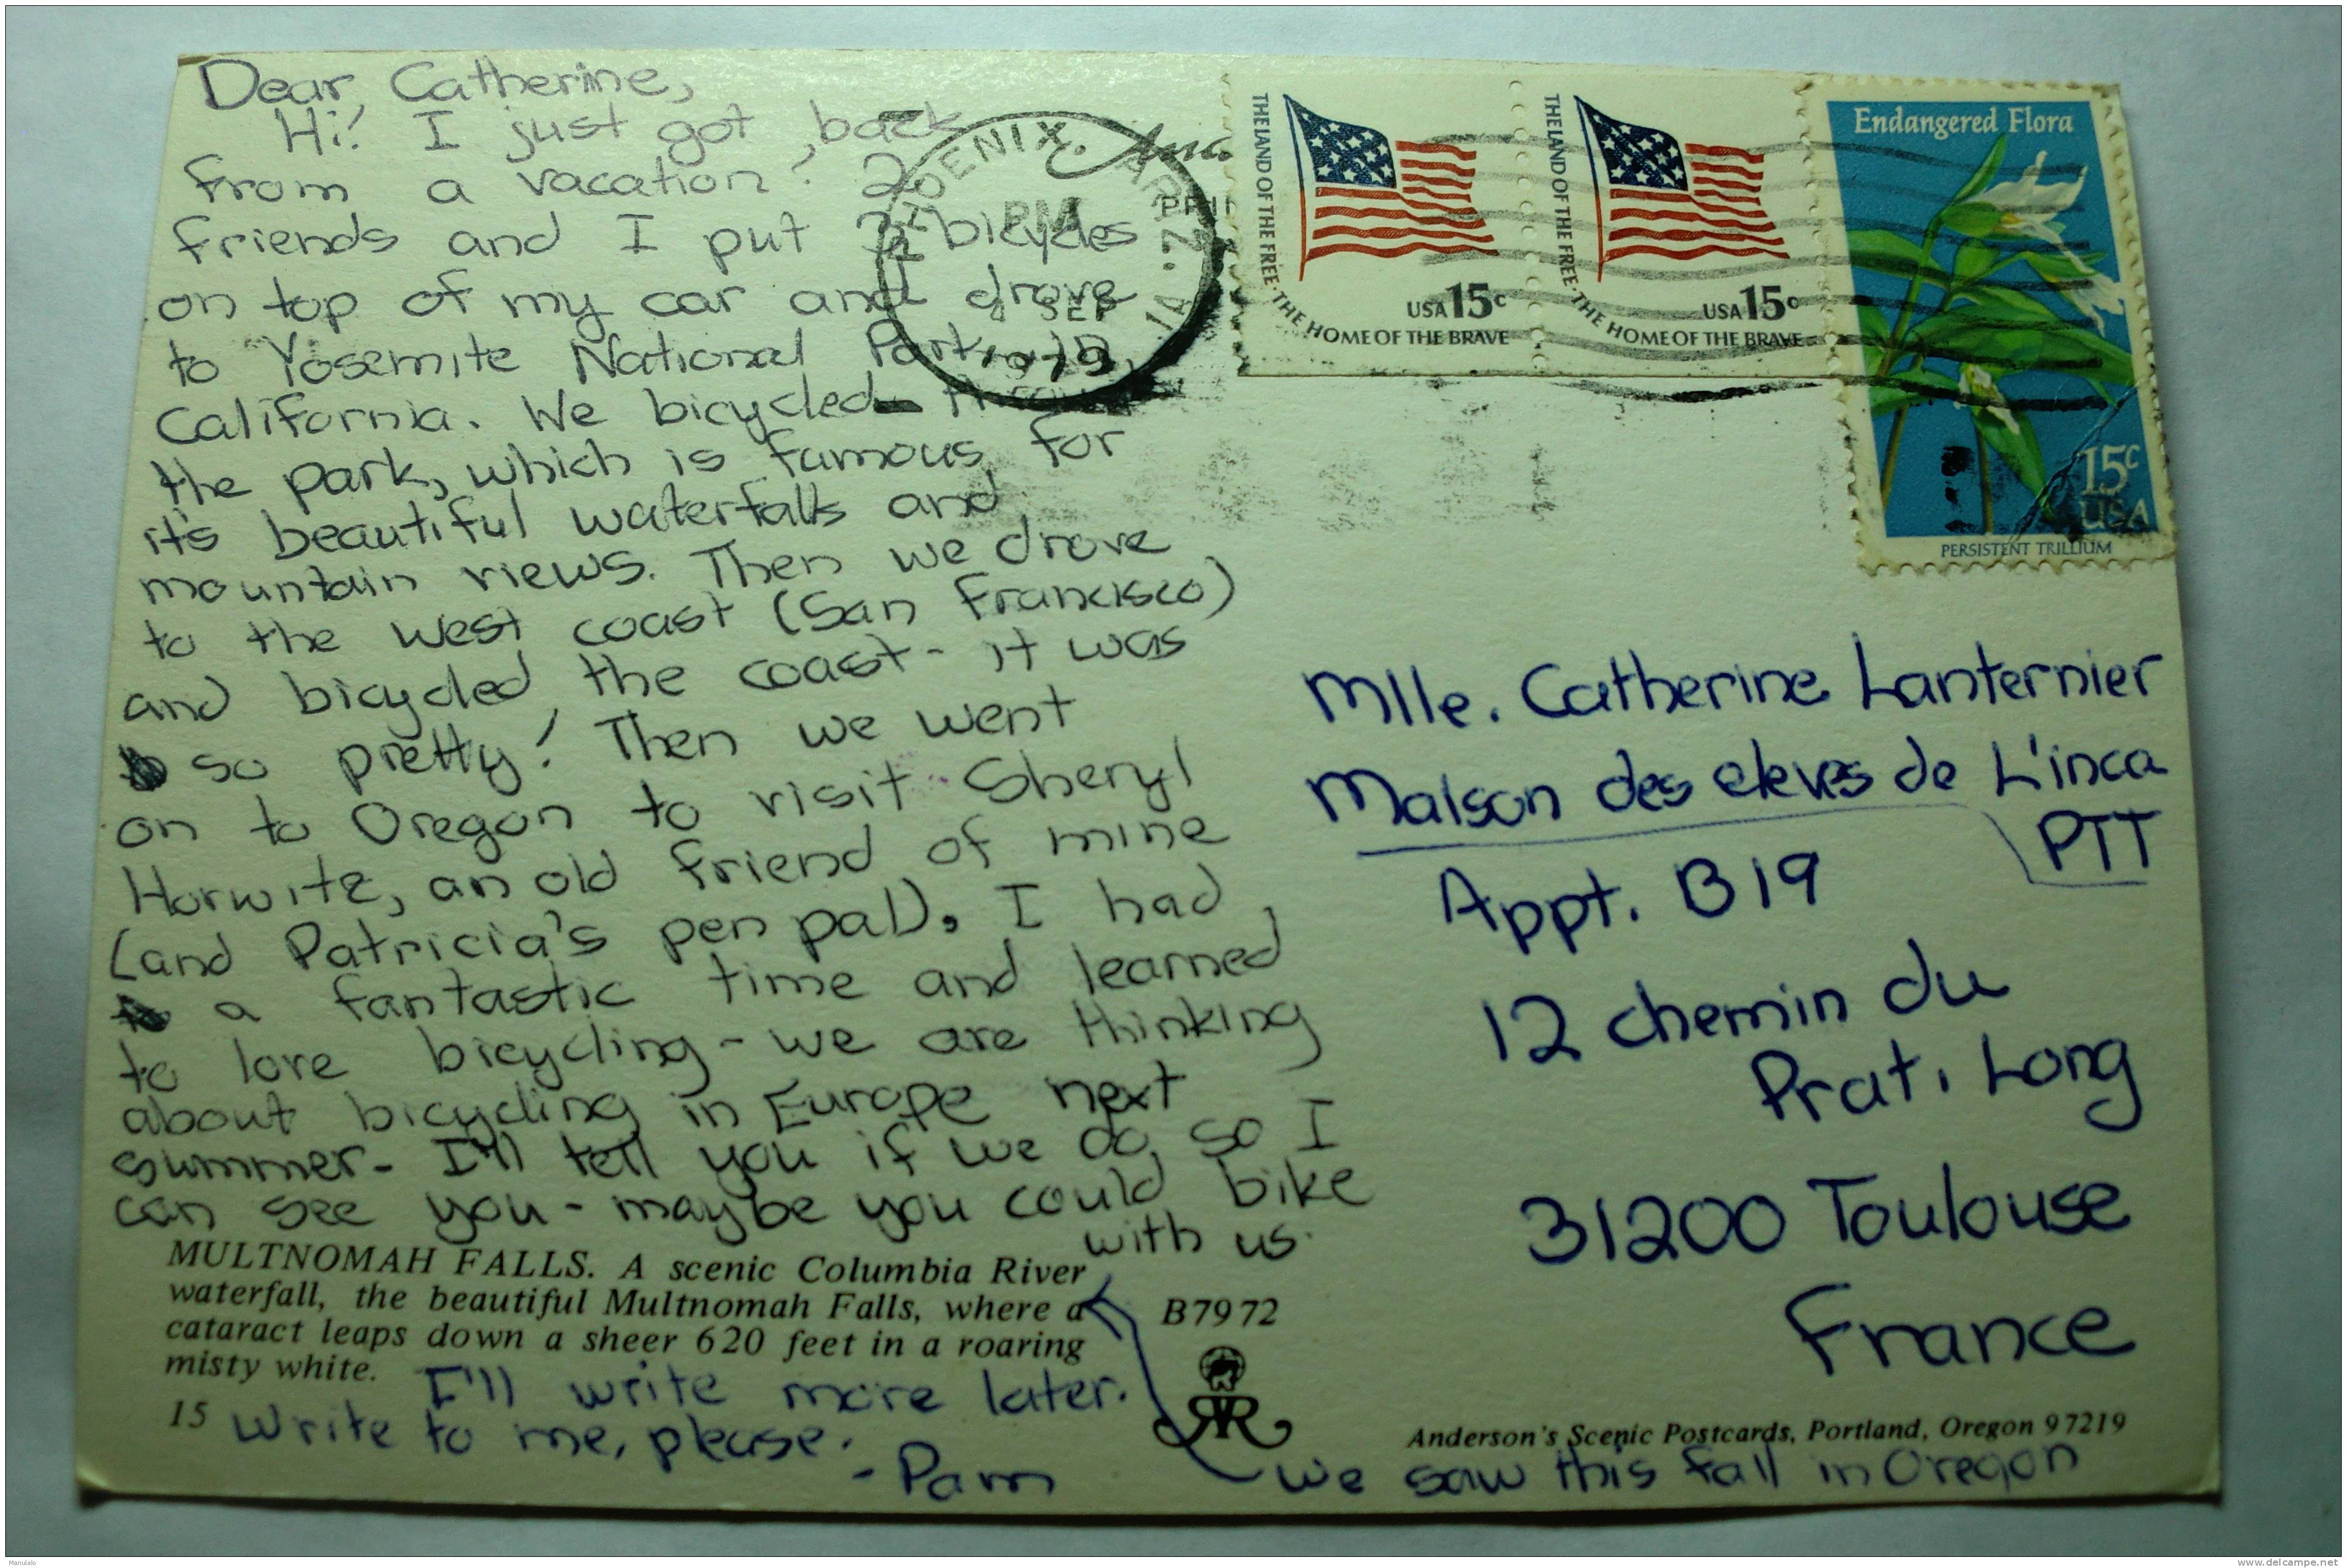 Dear Catherine,
Hi! I just got back
from a vacation! 2
friends and I put 3 bicycles
on top of my car and drove
to Yosemite National Park, in
California. We bicycled
the park, which is famous for
it's beautiful waterfalls and
mountain views. Then we drove
to the west coast (San Francisco)
and bicycled the coast - it was
so pretty! Then we went
on to Oregon to visit Sheryl
Horwitz, an old friend of mine
(and Patricia's pen pal). I had
a fantastic time and learned
to love bicycling - we are thinking
about bicycling in Europe next
summer - I'll tell you if we do, so I
can see you - maybe you could bike
with us.
MULTNOMAH FALLS. A scenic Columbia River
waterfall, the beautiful Multnomah Falls, where a
cataract leaps down a sheer 620 feet in a roaring
misty white.
I'll write more later.
15
Write to me, please.
- Pam
B7972
PHOENIX, ARIZ.
PM
SEP
1979
THE LAND OF THE FREE · THE HOME OF THE BRAVE
USA 15c
THE LAND OF THE FREE · THE HOME OF THE BRAVE
USA 15c
Endangered Flora
15c
USA
PERSISTENT TRILLIUM
Mlle. Catherine Lanternier
Maison des eleves de L'inca
PTT
Appt. B19
12 chemin du
Prat. Long
31200 Toulouse
France
Anderson's Scenic Postcards, Portland, Oregon 97219
we saw this fall in Oregon
Manulalo
www.delcampe.net